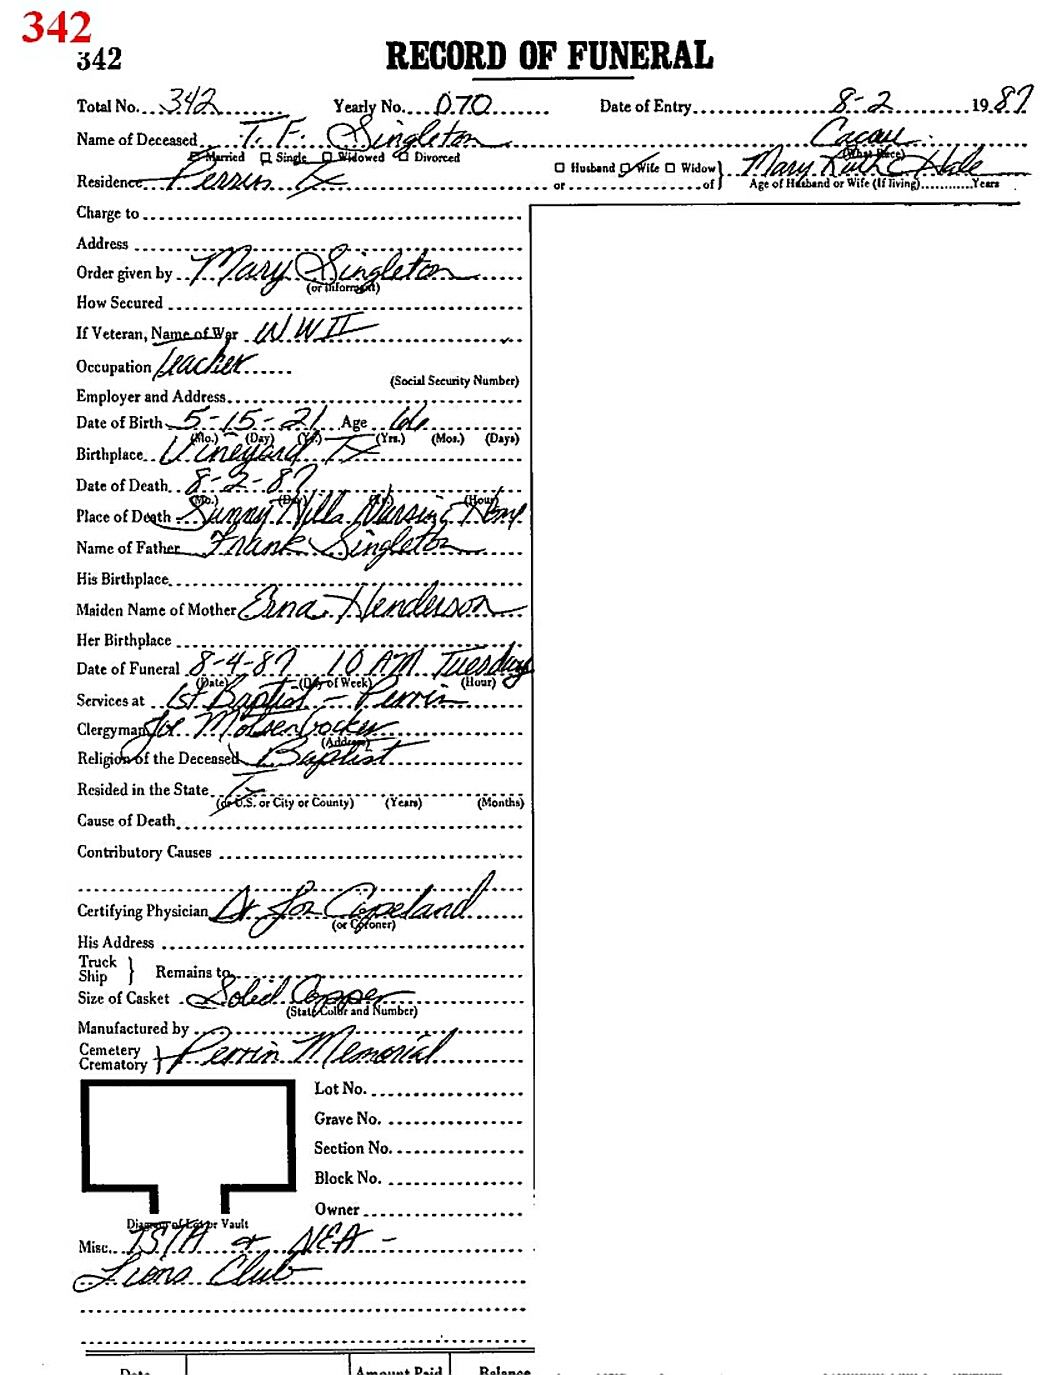 342
342 RECORD OF FUNERAL
Total No. 342 Yearly No. 070 Date of Entry 8-2 1987
Name of Deceased T. F. Singleton Cacau
Married Single Widowed Divorced (What Race)
Husband Wife Widow } Mary Ruth Hale
Residence Perrin Tx or of } Age of Husband or Wife (If living) Years
Charge to
Address
Order given by Mary Singleton
(or Informant)
How Secured
If Veteran, Name of War WWII
Occupation Teacher
(Social Security Number)
Employer and Address
Date of Birth 5-15-21 Age 66
(Mo.) (Day) (Yr.) (Yrs.) (Mos.) (Days)
Birthplace Vineyard Tx
Date of Death 8-2-87
(Mo.) (Day) (Yr.) (Hour)
Place of Death Sunny Hills Nursing Home
Name of Father Frank Singleton
His Birthplace
Maiden Name of Mother Erna Henderson
Her Birthplace
Date of Funeral 8-4-87 10 AM Tuesday
(Date) (Day of Week) (Hour)
Services at 1st Baptist - Perrin
Clergyman Joe Motsenbocker
(Address)
Religion of the Deceased Baptist
Resided in the State Tx
(or U.S. or City or County) (Years) (Months)
Cause of Death
Contributory Causes
Certifying Physician Dr Joe Copeland
(or Coroner)
His Address
Truck
Ship } Remains to
Size of Casket Solid Copper
(State Color and Number)
Manufactured by
Cemetery
Crematory } Perrin Memorial
Lot No.
Grave No.
Section No.
Block No.
Owner
Diagram of Lot or Vault
Misc. TSTA & NEA -
Lions Club
Date Amount Paid Balance